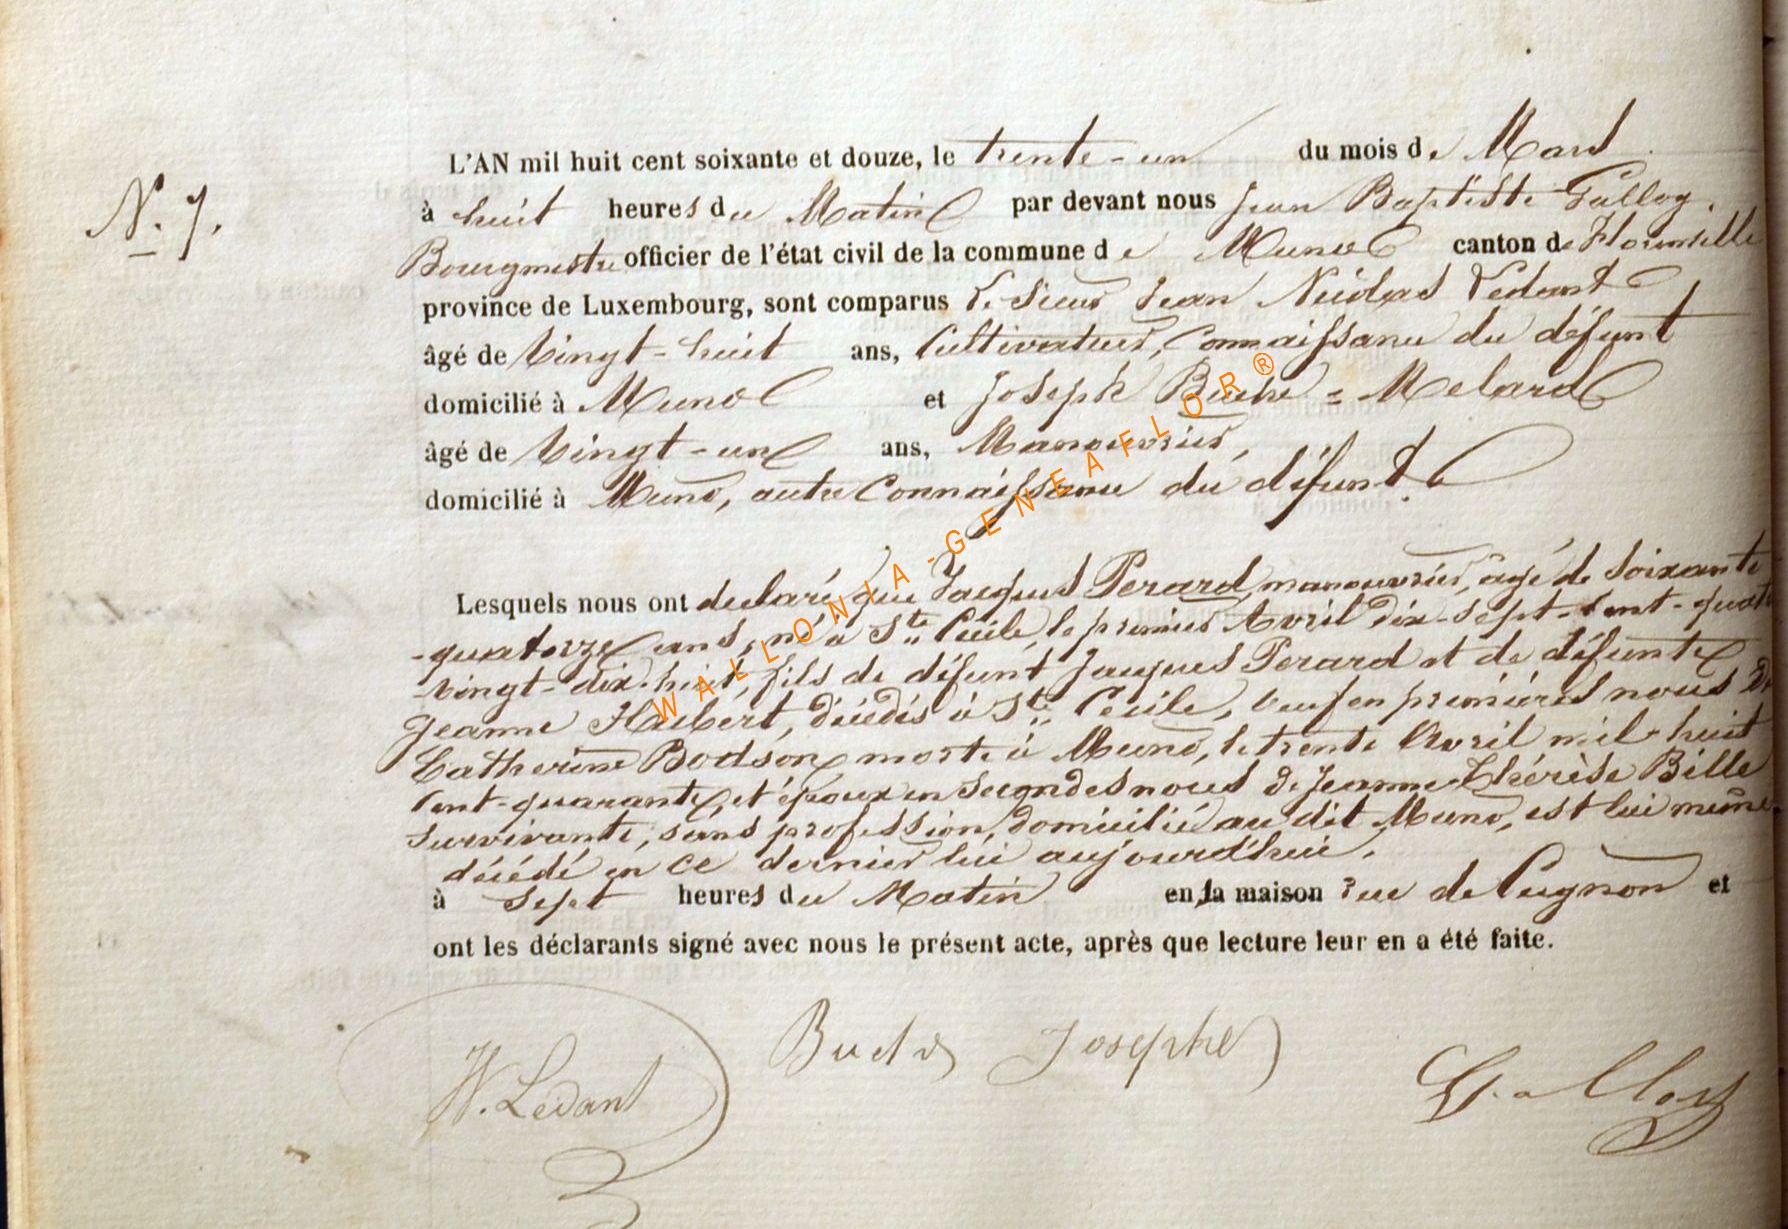 N. 7.
L'AN mil huit cent soixante et douze, le trente-un du mois de Mars
à huit heures du Matin par devant nous Jean Baptiste Galloy,
Bourgmestre officier de l'état civil de la commune de Muno canton de Florenville
province de Luxembourg, sont comparus le Sieur Jean Nicolas Ledant
âgé de Vingt-huit ans, Cultivateur, Connaissance du défunt
domicilié à Muno et Joseph Buche = Melard
âgé de Vingt-un ans, Manouvrier,
domicilié à Muno, autre Connaissance du défunt.
Lesquels nous ont declaré que Jacques Perard, manouvrier, agé de Soixante
-quatorze ans, né à Ste Cécile, le premier Avril dix-sept-Cent-quatre
-vingt-dix-huit, fils de défunt Jacques Perard et de défunte
Jeanne Haibert, décédés à Ste Cécile, Veuf en premières noces de
Catherine Bodson, morte à Muno, le trente Avril mil-huit
Cent-quarante, et époux en Secondes noces de Jeanne-Thérèse Bille
survivante, sans profession, domicilié au dit Muno, est lui même
décédé en ce dernier lieu aujourd'hui,
à Sept heures du Matin en la maison rue de Cugnon et
ont les déclarants signé avec nous le présent acte, après que lecture leur en a été faite.
N. Ledant
Joseph
Galloy
WALLONIA-GENEAFLOR®